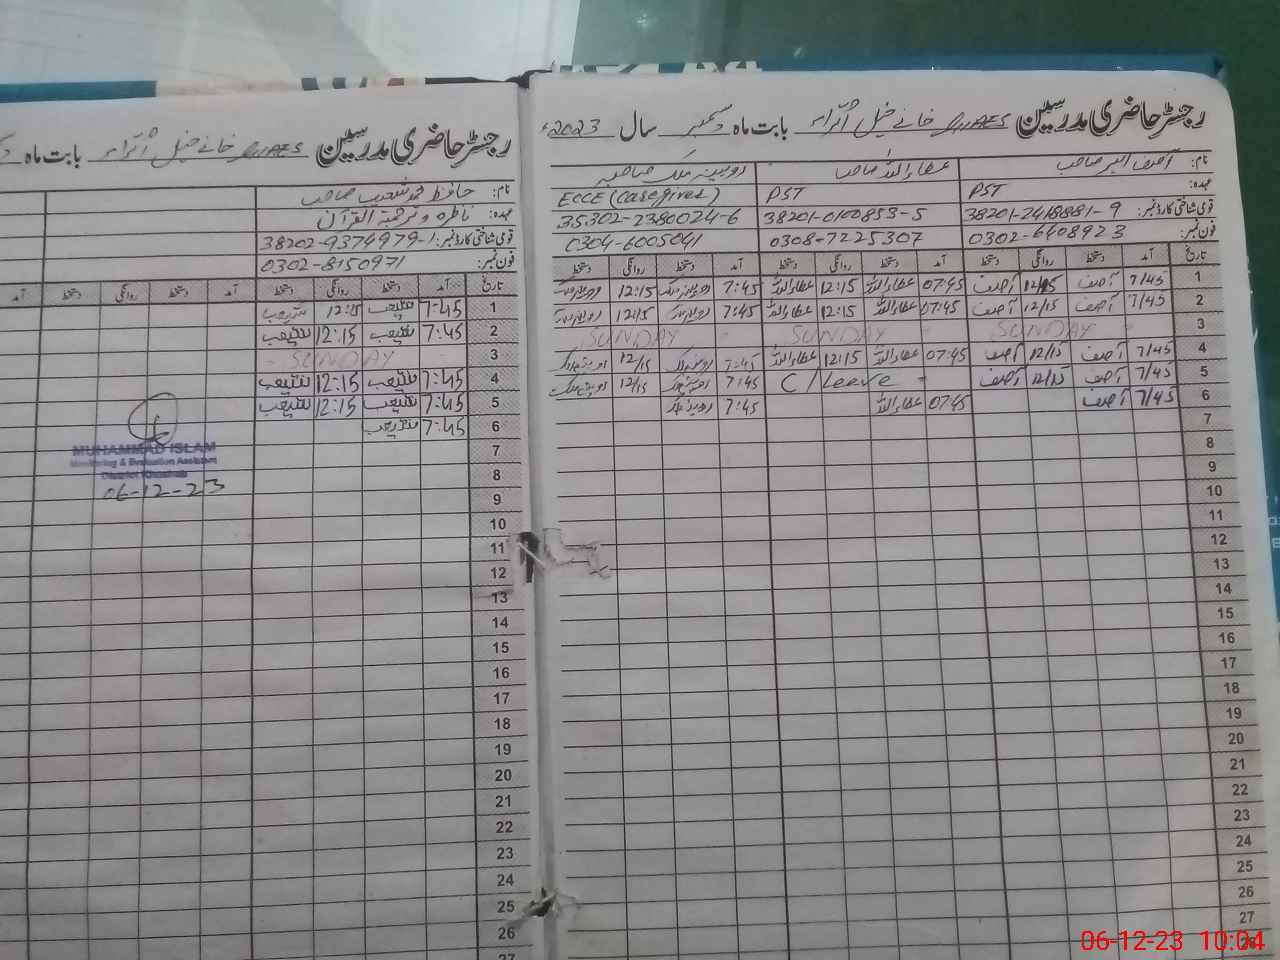 رجسٹر حاضری مدرسین
بابت ماہ دسمبر سال 2023ء
نام: آصف اکبر صاحب عطاء اللہ صاحب روبینہ ملک صاحبہ
عہدہ: PST PST ECCE (Caregiver)
قومی شناختی کارڈ نمبر: 38201-2418881-9 38201-0100853-5 35302-2380024-6
فون نمبر: 0302-6408923 0308-7225307 0304-6005041
تاریخ آمد دستخط روانگی دستخط آمد دستخط روانگی دستخط آمد دستخط روانگی دستخط
1 7/45 آصف 12/15 آصف 07:45 عطاء اللہ 12:15 عطاء اللہ 7:45 12:15
2 7/45 آصف 12/15 آصف 07:45 عطاء اللہ 12:15 عطاء اللہ 7:45 12:15
3 SUNDAY SUNDAY SUNDAY
4 7/45 آصف 12/15 آصف 07:45 عطاء اللہ 12:15 عطاء اللہ 7:45 12/15
5 7/45 آصف 12/15 آصف C/Leave 7:45 12/15
6 7/45 آصف 07:45 عطاء اللہ 7:45
7
8
9
10
11
12
13
14
15
16
17
18
19
20
21
22
23
24
25
26
27
رجسٹر حاضری مدرسین
بابت ماہ
نام: حافظ محمد شعیب صاحب
عہدہ: ناظرہ و ترجمۃ القرآن
قومی شناختی کارڈ نمبر: 38202-9374979-1
فون نمبر: 0302-8150971
تاریخ آمد دستخط روانگی دستخط آمد دستخط روانگی دستخط آمد
1 7:45 شعیب 12:15 شعیب
2 7:45 شعیب 12:15 شعیب
3 SUNDAY
4 7:45 شعیب 12:15 شعیب
5 7:45 شعیب 12:15 شعیب
6 7:45 شعیب
7
8
9
10
11
12
13
14
15
16
17
18
19
20
21
22
23
24
25
26
27
MUHAMMAD ISLAM
Monitoring & Evaluation Assistant
District Khushab
06-12-23
06-12-23 10:04